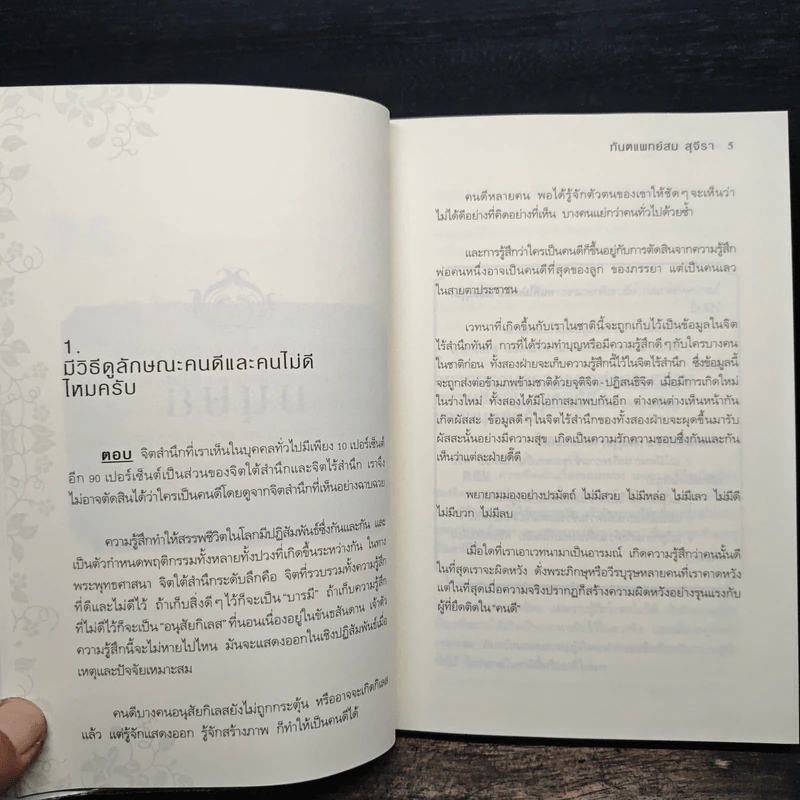 1.
มีวิธีดูลักษณะคนดีและคนไม่ดี
ไหมครับ
ตอบ จิตสำนึกที่เราเห็นในบุคคลทั่วไปมีเพียง 10 เปอร์เซ็นต์
อีก 90 เปอร์เซ็นต์เป็นส่วนของจิตใต้สำนึกและจิตไร้สำนึก เราจึง
ไม่อาจตัดสินได้ว่าใครเป็นคนดีโดยดูจากจิตสำนึกที่เห็นอย่างฉาบฉวย
ความรู้สึกทำให้สรรพชีวิตในโลกมีปฏิสัมพันธ์ซึ่งกันและกัน และ
เป็นตัวกำหนดพฤติกรรมทั้งหลายทั้งปวงที่เกิดขึ้นระหว่างกัน ในทาง
พระพุทธศาสนา จิตใต้สำนึกระดับลึกคือ จิตที่รวบรวมทั้งความรู้สึก
ที่ดีและไม่ดีไว้ ถ้าเก็บสิ่งดีๆ ไว้ก็จะเป็น "บารมี" ถ้าเก็บความรู้สึก
ที่ไม่ดีไว้ก็จะเป็น "อนุสัยกิเลส" ที่นอนเนื่องอยู่ในขันธสันดาน เจ้าตัว
ความรู้สึกนี้จะไม่หายไปไหน มันจะแสดงออกในเชิงปฏิสัมพันธ์เมื่อ
เหตุและปัจจัยเหมาะสม
คนดีบางคนอนุสัยกิเลสยังไม่ถูกกระตุ้น หรืออาจจะเกิดกิเลส
แล้ว แต่รู้จักแสดงออก รู้จักสร้างภาพ ก็ทำให้เป็นคนดีได้
ทันตแพทย์สม สุจีรา 5
คนดีหลายคน พอได้รู้จักตัวตนของเขาให้ชัดๆ จะเห็นว่า
ไม่ได้ดีอย่างที่คิดอย่างที่เห็น บางคนแย่กว่าคนทั่วไปด้วยซ้ำ
และการรู้สึกว่าใครเป็นคนดีก็ขึ้นอยู่กับการตัดสินจากความรู้สึก
พ่อคนหนึ่งอาจเป็นคนดีที่สุดของลูก ของภรรยา แต่เป็นคนเลว
ในสายตาประชาชน
เวทนาที่เกิดขึ้นกับเราในชาตินี้จะถูกเก็บไว้เป็นข้อมูลในจิต
ไร้สำนึกทันที การที่ได้ร่วมทำบุญหรือมีความรู้สึกดีๆ กับใครบางคน
ในชาติก่อน ทั้งสองฝ่ายจะเก็บความรู้สึกนี้ไว้ในจิตไร้สำนึก ซึ่งข้อมูลนี้
จะถูกส่งต่อข้ามภพข้ามชาติด้วยจุติจิต-ปฏิสนธิจิต เมื่อมีการเกิดใหม่
ในร่างใหม่ ทั้งสองได้มีโอกาสมาพบกันอีก ต่างคนต่างเห็นหน้ากัน
เกิดผัสสะ ข้อมูลดีๆ ในจิตไร้สำนึกของทั้งสองฝ่ายจะผุดขึ้นมารับ
ผัสสะนั้นอย่างมีความสุข เกิดเป็นความรักความชอบซึ่งกันและกัน
เห็นว่าแต่ละฝ่ายดี๊ดี
พยายามมองอย่างปรมัตถ์ ไม่มีสวย ไม่มีหล่อ ไม่มีเลว ไม่มีดี
ไม่มีบวก ไม่มีลบ
เมื่อใดที่เราเอาเวทนามาเป็นอารมณ์ เกิดความรู้สึกว่าคนนั้นดี
ในที่สุดเราจะผิดหวัง ดั่งพระภิกษุหรือวีรบุรุษหลายคนที่เราคาดหวัง
แต่ในที่สุดเมื่อความจริงปรากฏก็สร้างความผิดหวังอย่างรุนแรงกับ
ผู้ที่ยึดติดใน "คนดี"